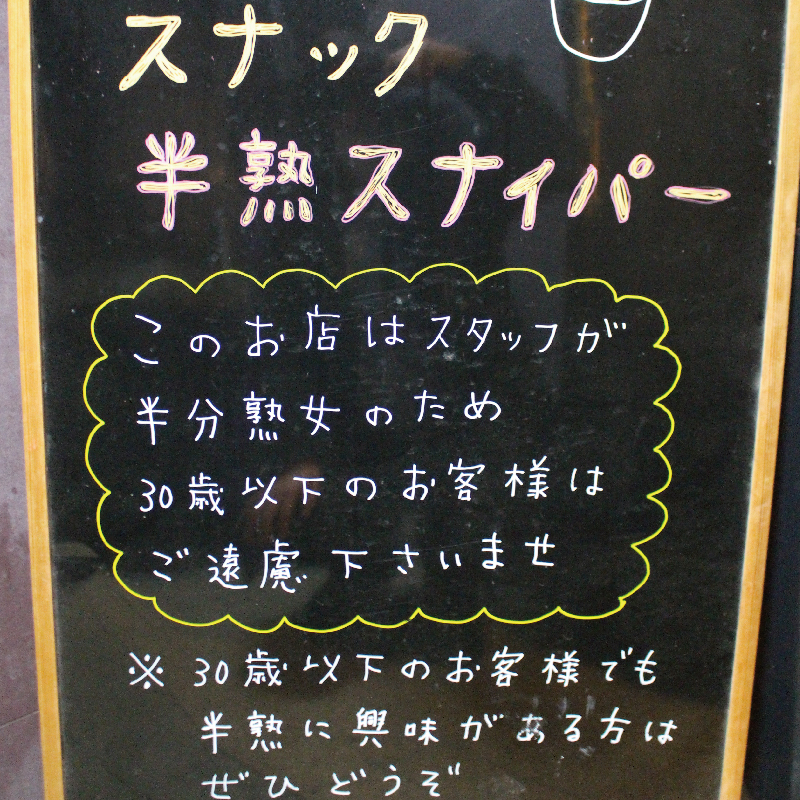 スナック
半熟スナイパー
このお店はスタッフが
半分熟女のため
30歳以下のお客様は
ご遠慮下さいませ
※30歳以下のお客様でも
半熟に興味がある方は
ぜひどうぞ